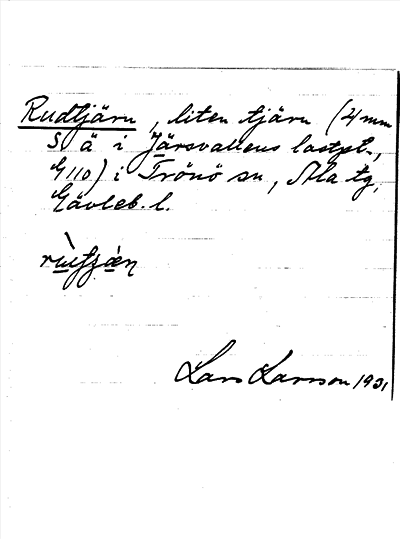 Rudtjärn, liten tjärn (4 mm
S ä i Järsvallens lastpl.,
G 110) i Trönö sn, Ala tg,
Gävleb. l.
Lars Larsson 1931